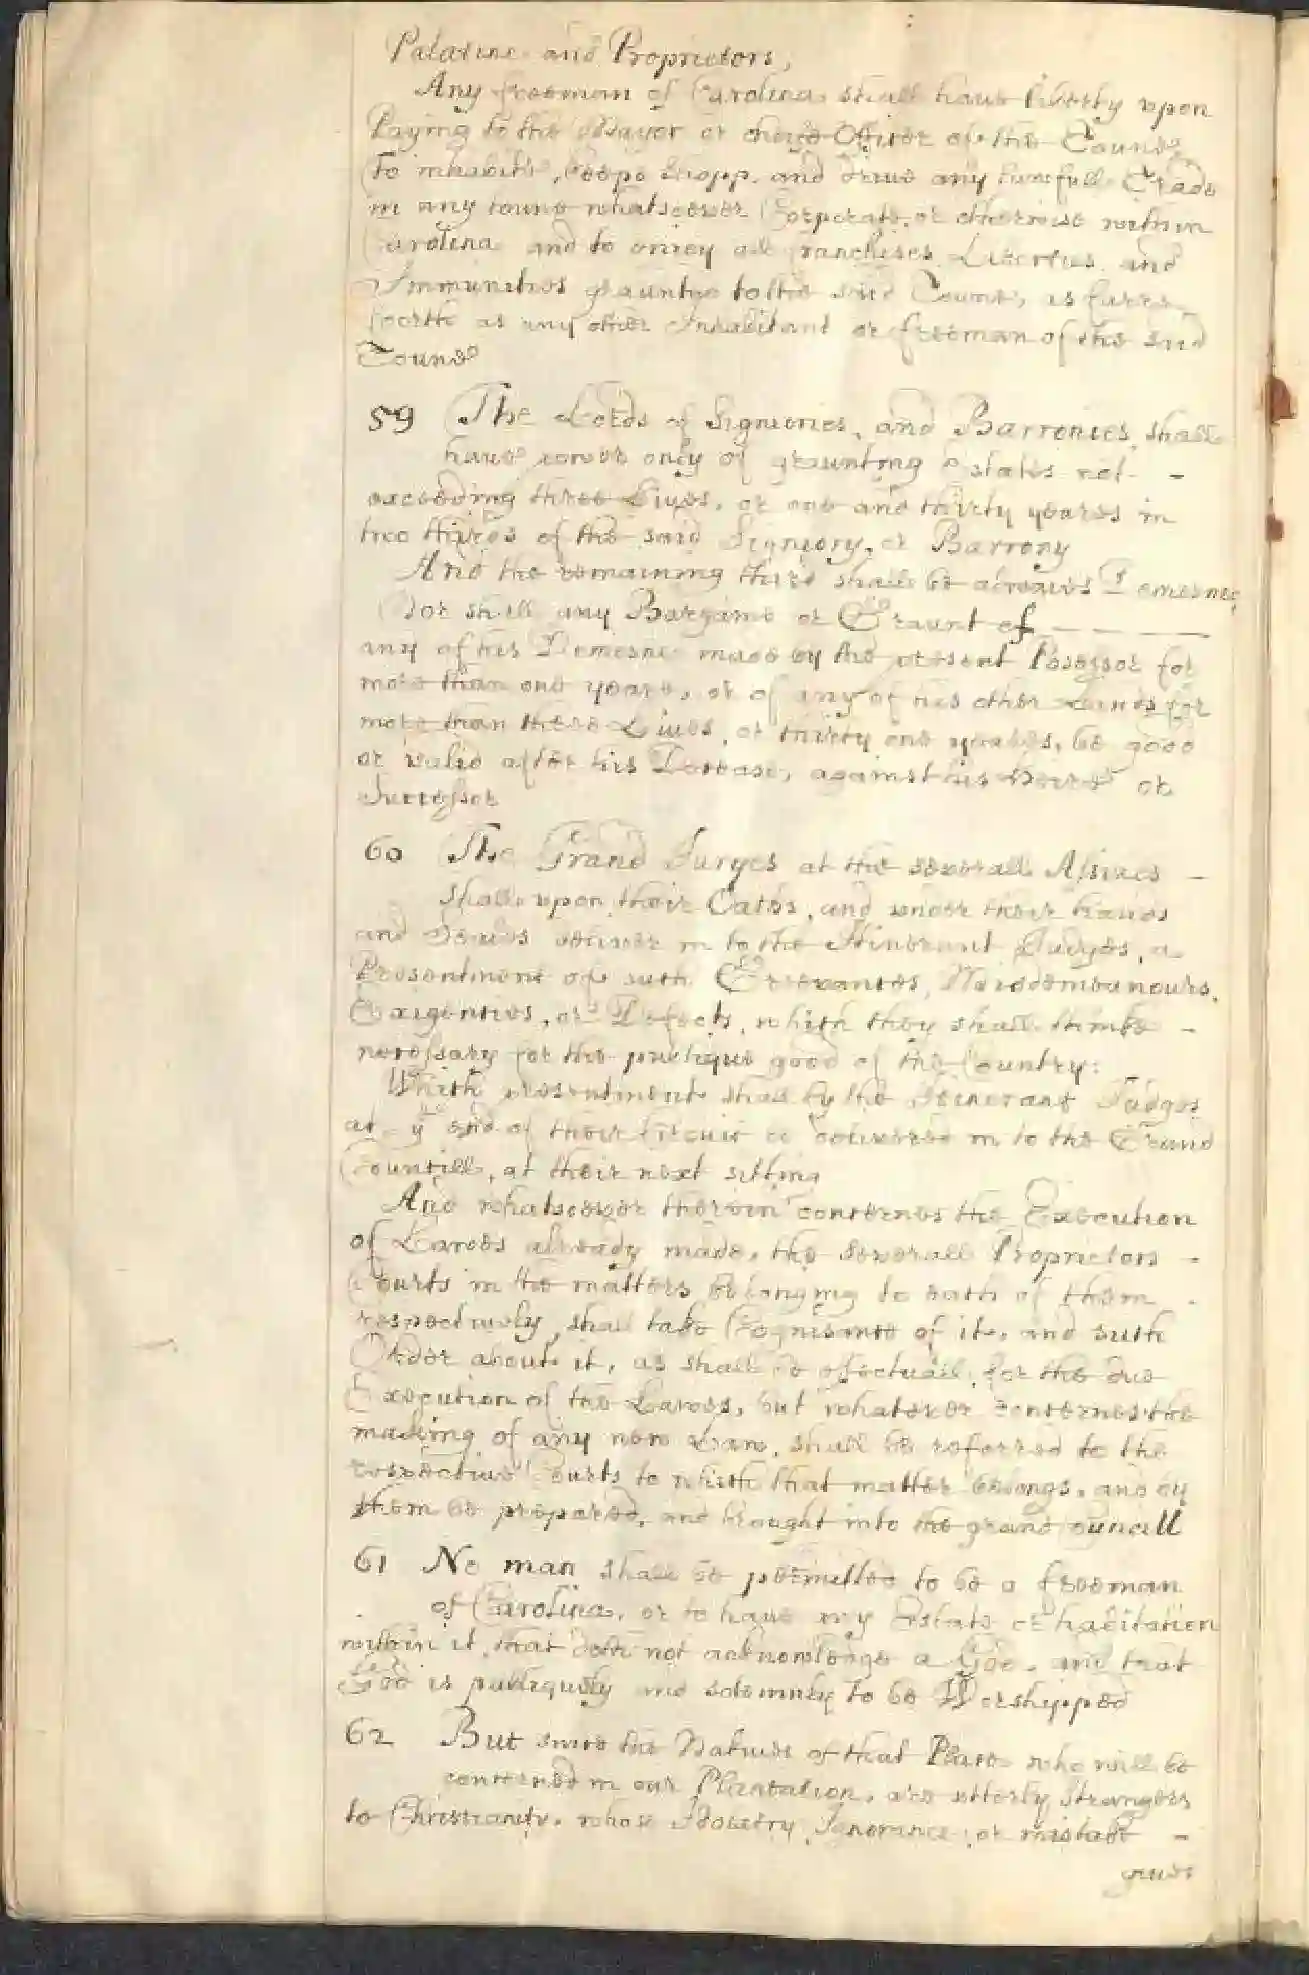 Palatine and Proprietors,
Any freeman of Carolina shall have liberty upon
Paying to the Mayor or cheife Officer of the Towne
To inhabite, keepe Shopp, and drive any lawfull Trade
in any towne whatsoever Corporate, or otherwise within
Carolina and to enioy all Franchises Liberties and
Immunities graunted to the said Towne, as farre
foorth as any other Inhabitant or freeman of the said
Towne
59 The Lords of Signiories, and Barronies shall
have power only of graunting Estates not -
exceeding three Lives, or one and thirty yeares in
two thirds of the said Signiory, or Barrony
And the remaining third shall be alwaies Demesne
Nor shall any Bargaine or Graunt of
any of his Demesne made by the present Posessor for
more than one yeare, or of any of his other Lands for
more than three Lives, or thirty one yeares, be good
or valid after his Decease, against his Heire or
Successor
60 The Grand Juryes at the severall Assizes -
shall upon their Oaths, and under their hands
and Seales deliver in to the Itinerant Judges, a
Presentment of such Grievances, Misdemeanours,
Exigencies, or Defects, which they shall thinke -
necessary for the publique good of the Country:
Which presentment shall by the Itinerant Judges
at ye end of their Circuit be delivered in to the Grand
Councill, at their next sitting
And whatsoever therein concernes the Execution
of Lawes already made, the severall Proprietors -
Courts in the matters belonging to each of them
respectively, shall take Cognisance of it, and such
Order about it, as shall be efectuall for the due
Execution of the Lawes, but whatever concernes the
making of any new Law, shall be referred to the
respective Courts to which that matter belongs, and by
them be prepared, and brought into the grand Councill
61 No man shall be permitted to be a freeman
of Carolina, or to have any Estate or habitation
within it, that doth not acknowledge a God, and that
God is publiquely and solemnly to be Worshipped
62 But since the Natives of that Place who will be
concerned in our Plantation, are utterly strangers
to Christianity, whose Idolatry Ignorance, or mistake -
gives